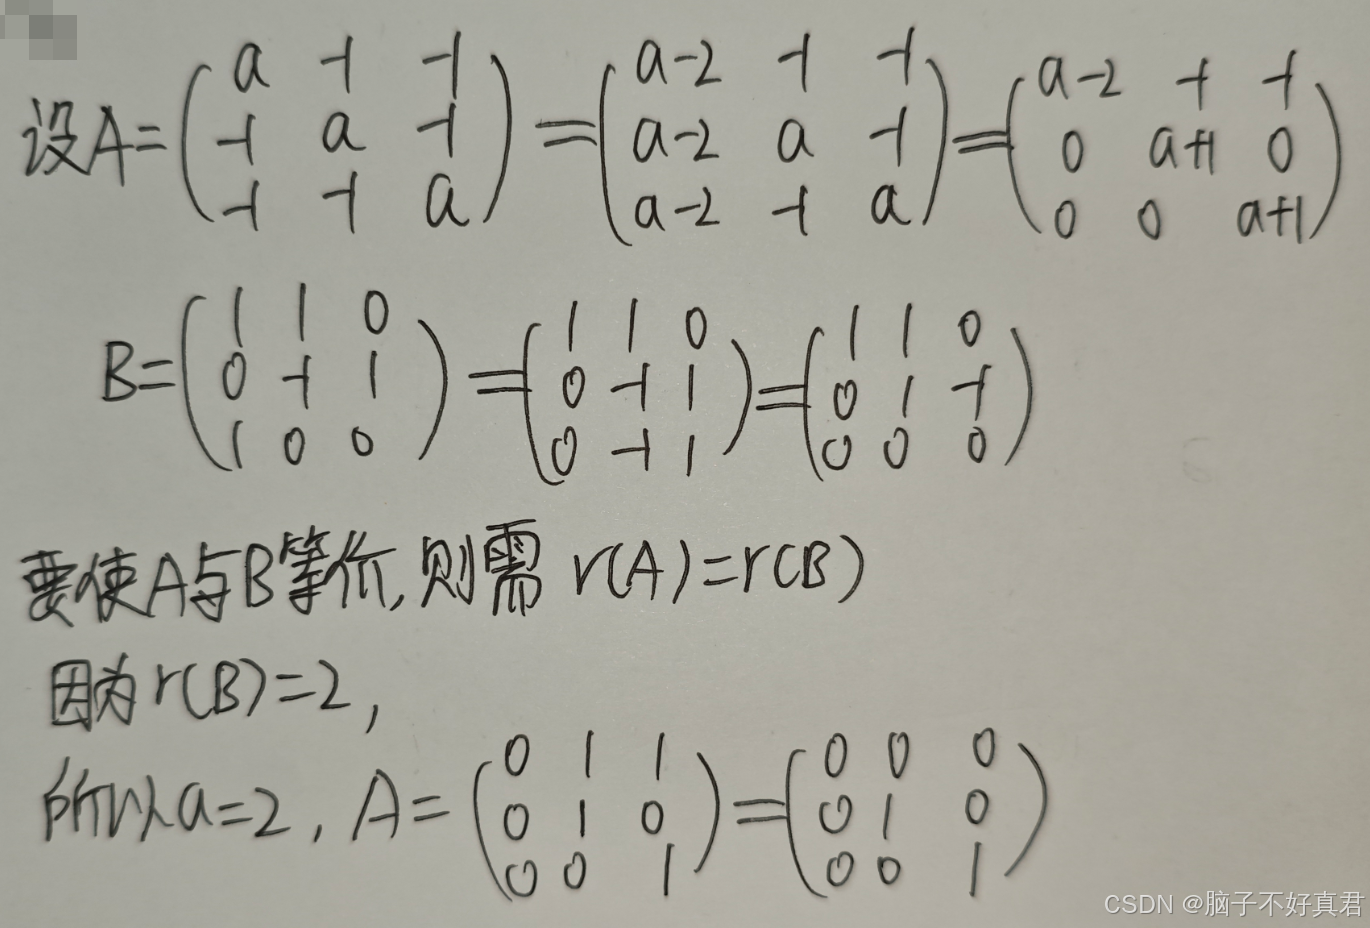 设A=(a -1 -1 =(a-2 -1 -1 =(a-2 -1 -1
-1 a -1 a-2 a -1 0 a+1 0
-1 -1 a) a-2 -1 a) 0 0 a+1)
B=(1 1 0 =(1 1 0 =(1 1 0
0 -1 1 0 -1 1 0 1 -1
1 0 0) 0 -1 1) 0 0 0)
要使A与B等价,则需 r(A)=r(B)
因为r(B)=2,
所以a=2, A=(0 1 1 =(0 0 0
0 1 0 0 1 0
0 0 1) 0 0 1)
CSDN @脑子不好真君